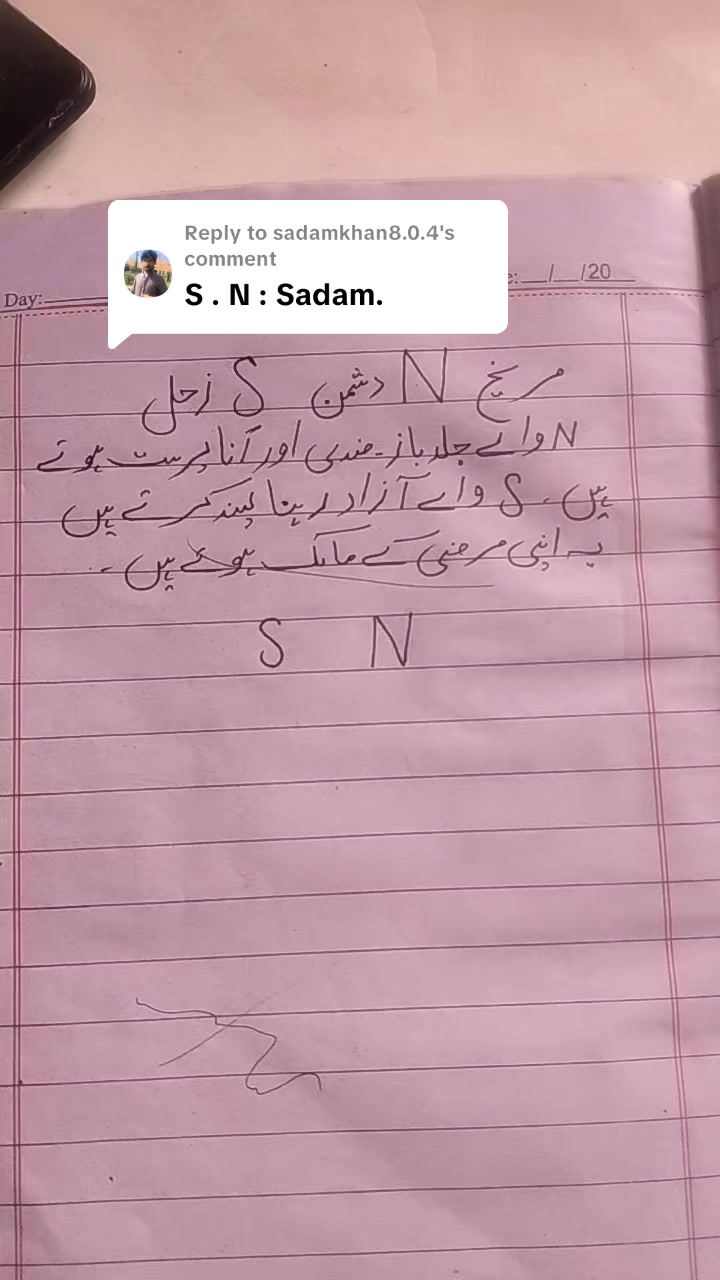 Reply to sadamkhan8.0.4's
comment
S . N : Sadam.
Day:
/ /20
مریخ N دشمن S زحل
N والے جلد باز۔ ضدی اور آنا پرست ہوتے
ہیں۔ S والے آزاد رہنا پسند کرتے ہیں
یہ اپنی مرضی کے مالک ہوتے ہیں ۔
S N